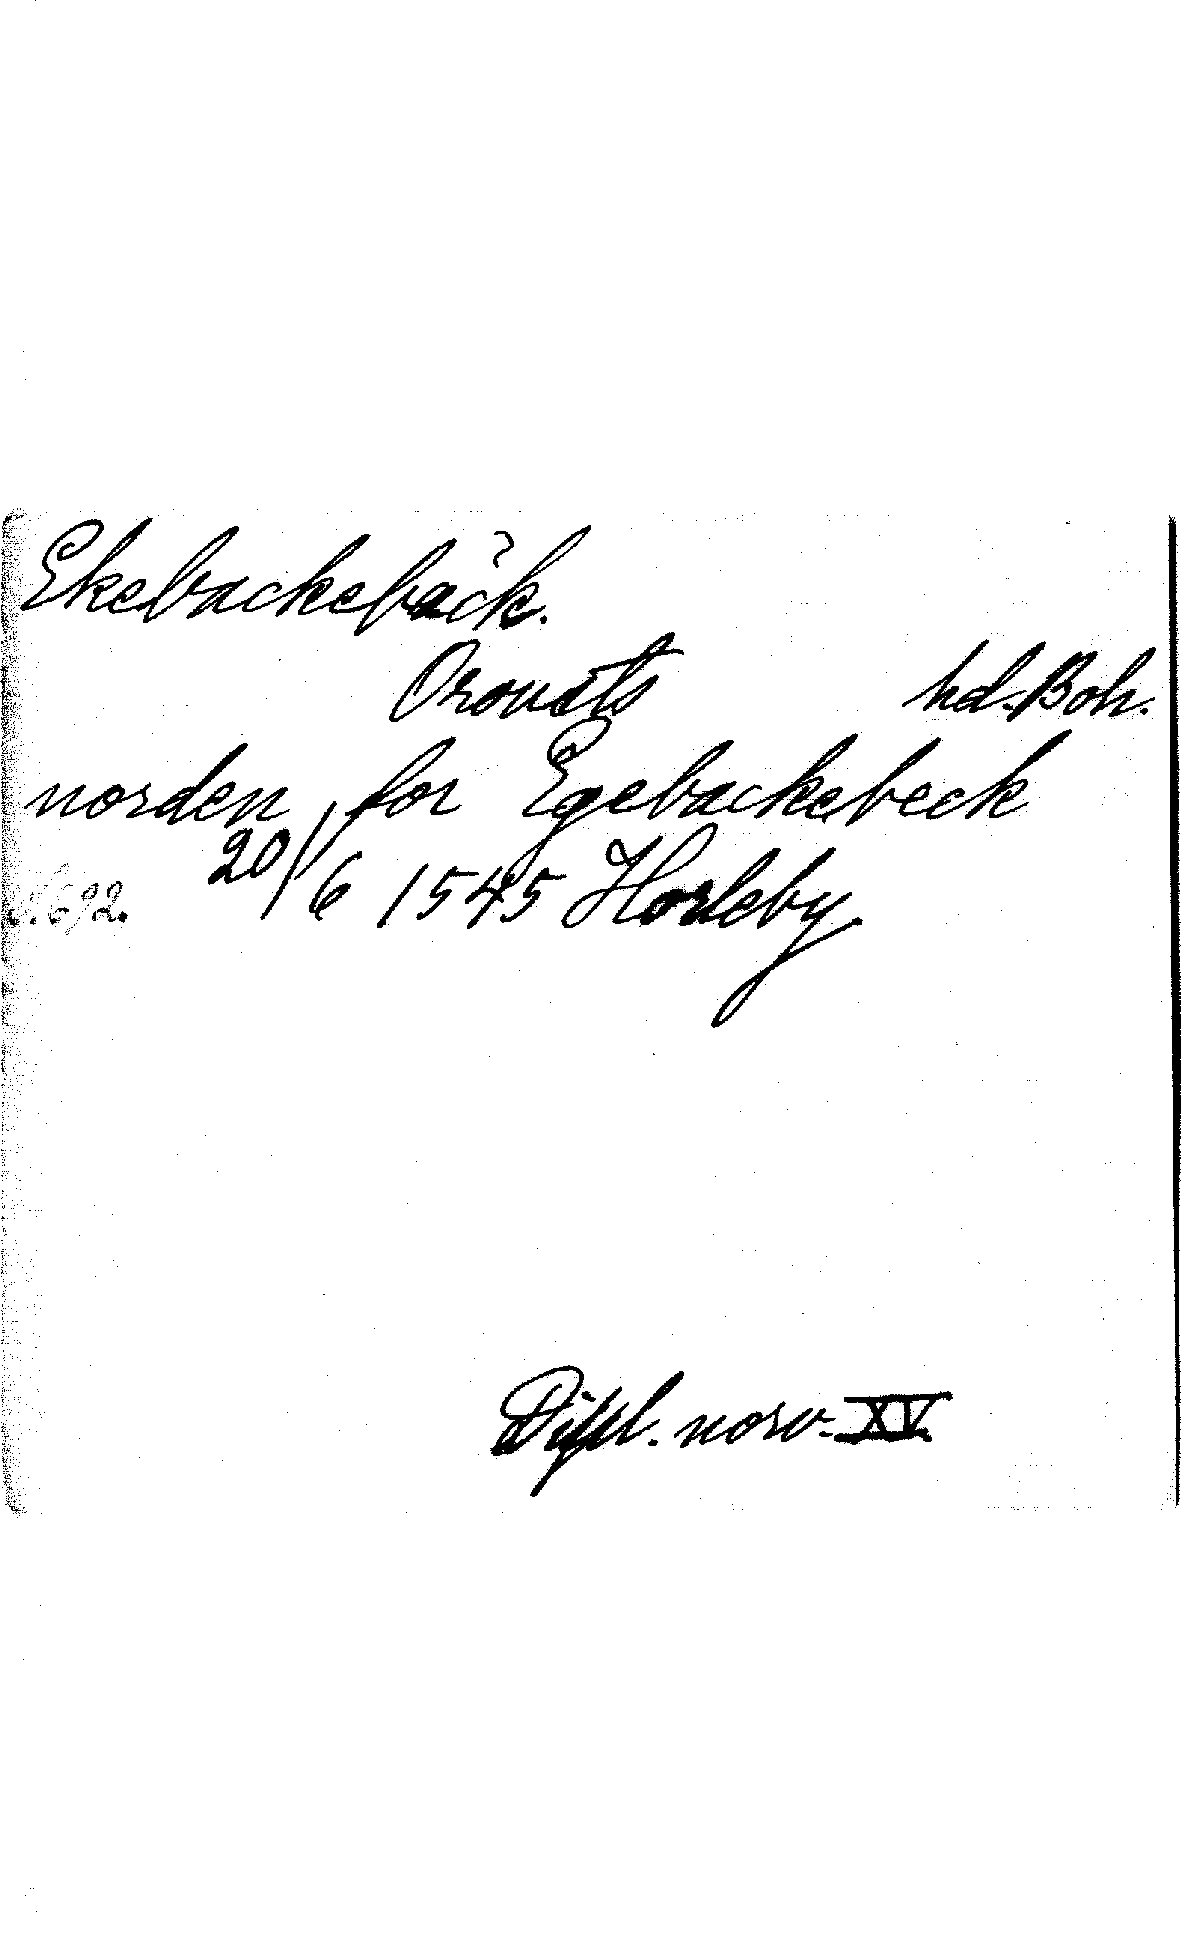 Ekebackebäck.
Orousts hd. Boh.
norden for Egebackebeck
S. 692. 20/6 1545 Horleby.
Dipl. norv. XV